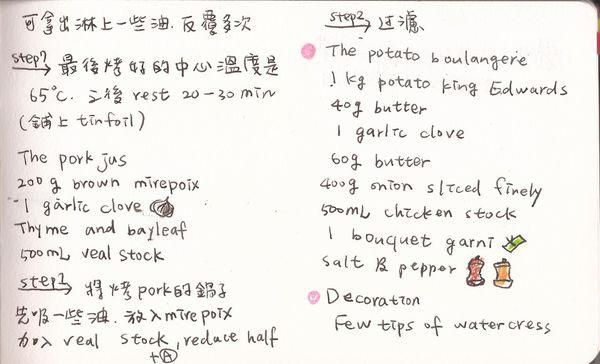 可拿出淋上一些油. 反覆多次
step7 最後烤好的中心溫度是
65°C. 之後 rest 20-30 min
(鋪上 tinfoil)
The pork jus
200g brown mirepoix
1 garlic clove
Thyme and bayleaf
500mL veal stock
step1 將烤pork的鍋子
先吸一些油. 放入mirepoix
加入 veal stock, reduce half
+A
step2 过滤
The potato boulangere
1 kg potato king Edwards
40g butter
1 garlic clove
60g butter
400g onion sliced finely
500mL chicken stock
1 bouquet garni
salt & pepper
Decoration
Few tips of watercress